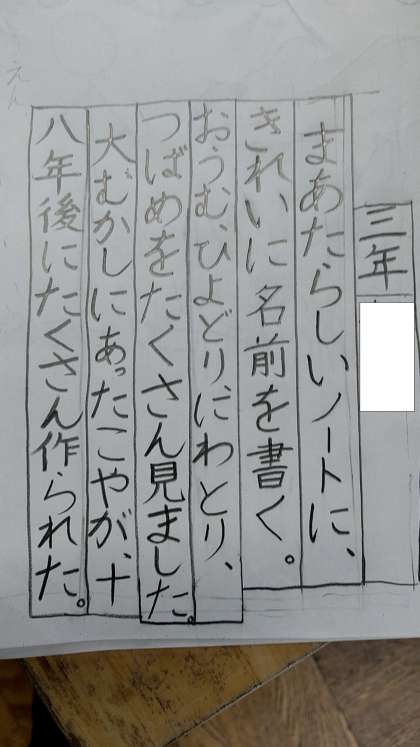 三年
まあたらしいノートに、
きれいに名前を書く。
おうむ、ひよどり、にわとり、
つばめをたくさん見ました。
大むかしにあったこやが、十
八年後にたくさん作られた。
えん